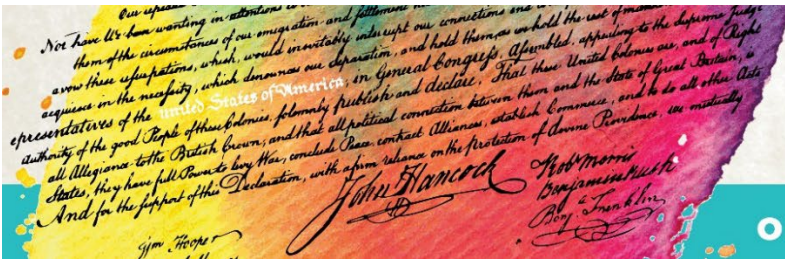 Our repeated
Nor have We been wanting in attentions to
them of the circumstances of our emigration and settlement h
avow these usurpations, which, would inevitably interrupt our connections and co
acquiesce in the necessity, which denounces our Separation, and hold them, as we hold the rest of mankind
epresentatives of the united States of America, in General Congress, Assembled, appealing to the Supreme Judge
authority of the good People of these Colonies, solemnly publish and declare, That these United Colonies are, and of Right
all Allegiance to the British Crown, and that all political connection between them and the State of Great Britain, is
States, they have full Power to levy War, conclude Peace, contract Alliances, establish Commerce, and to do all other Acts
And for the support of this Declaration, with a firm reliance on the protection of divine Providence, we mutually
John Hancock
Robt Morris
Benjamin Rush
Benja Franklin
Wm Hooper